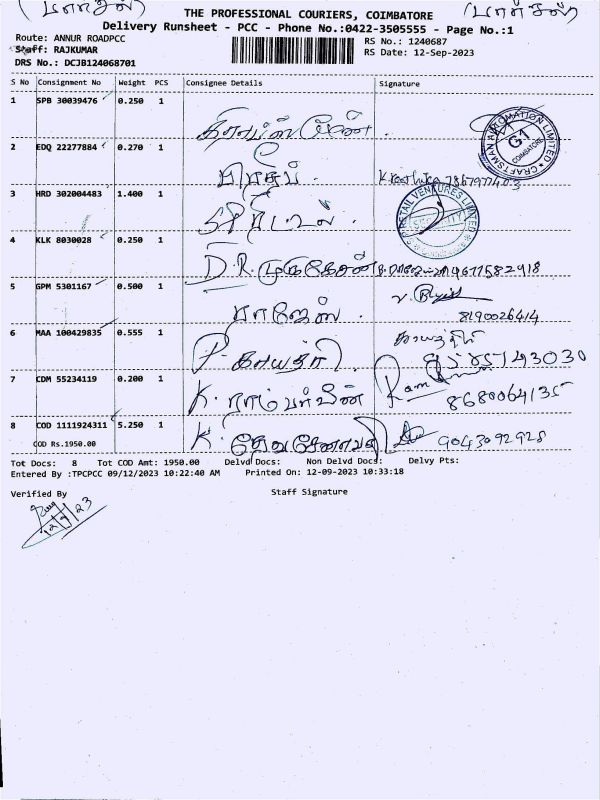 (பார்சல்)
(பார்சல்)
THE PROFESSIONAL COURIERS, COIMBATORE
Delivery Runsheet - PCC - Phone No.:0422-3505555 - Page No.:1
Route: ANNUR ROADPCC
RS No.: 1240687
Staff: RAJKUMAR
RS Date: 12-Sep-2023
DRS No.: DCJB124068701
S No Consignment No Weight PCS Consignee Details Signature
1 SPB 30039476 0.250 1
CRAFTSMAN AUTOMATION LIMITED
G1
COIMBATORE
2 EDQ 22277884 0.270 1
3 HRD 302004483 1.400 1
RETAIL VENTURES LIMITED
4 KLK 8030028 0.250 1 D.R. முருகேசன் 9677582918
5 GPM 5301167 0.500 1 ராஜேஸ். 8190026414
6 MAA 100429835 0.555 1 P. காயத்ரி. காயத்ரி
7 CDM 55234119 0.200 1 K. ராம் பர்வீன் Ram 8680064135
8 COD 1111924311 5.250 1 K. தேவசேனாபதி 9043092928
COD Rs.1950.00
Tot Docs: 8 Tot COD Amt: 1950.00 Delvd Docs: Non Delvd Docs: Delvy Pts:
Entered By :TPCPCC 09/12/2023 10:22:40 AM Printed On: 12-09-2023 10:33:18
Verified By Staff Signature
12/9/23